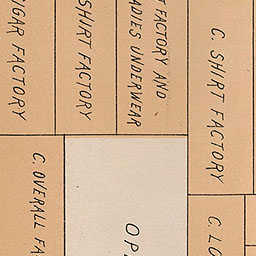 IGAR FACTORY
SHIRT FACTORY
T FACTORY AND
ADIES UNDERWEAR
C. SHIRT FACTORY
C. OVERALL FA
OP
C. LO